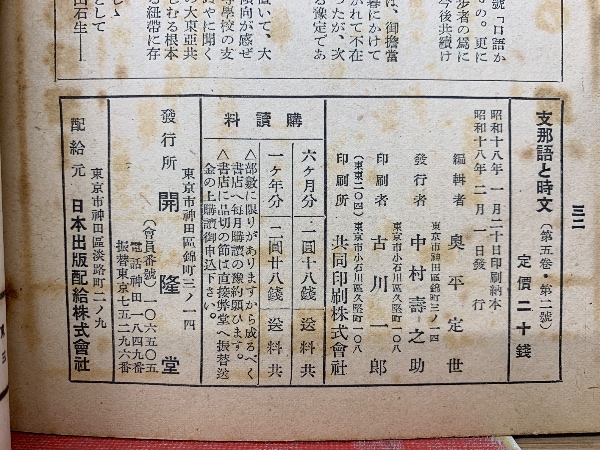 號「口語か
もの。更に
歩者の爲に
今後共續け
は、御擔當
暮にかけて
がれて不在
つたが、次
る豫定であ
直いて、大
傾向が感ぜ
等學校の支
やに聞く
の大東亞共
しむる根本
る紐帶に存
として
山石生——
三二
支那語と時文(第五卷・第二號) 定價二十錢
昭和十八年一月二十日印刷納本
昭和十八年二月一日發行
編輯者 奧平定世
東京市神田區錦町三ノ一四
發行者 中村壽之助
東京市小石川區久堅町一〇八
印刷者 古川一郎
(東東二〇四)東京市小石川區久堅町一〇八
印刷所 共同印刷株式會社
購讀料
六ケ月分 一圓十八錢 送料共
一ケ年分 二圓廿八錢 送料共
△部數に限りがありますから成るべく
書店へ每月購讀の豫約願ひます。
△書店に品切の節は直接弊堂へ振替送
金の上購讀御申込下さい。
東京市神田區錦町三ノ一四
發行所 開隆堂
(會員番號)一〇六五〇五
電話神田一八四九番
振替東京七五二九六番
東京市神田區淡路町二ノ九
配給元 日本出版配給株式會社